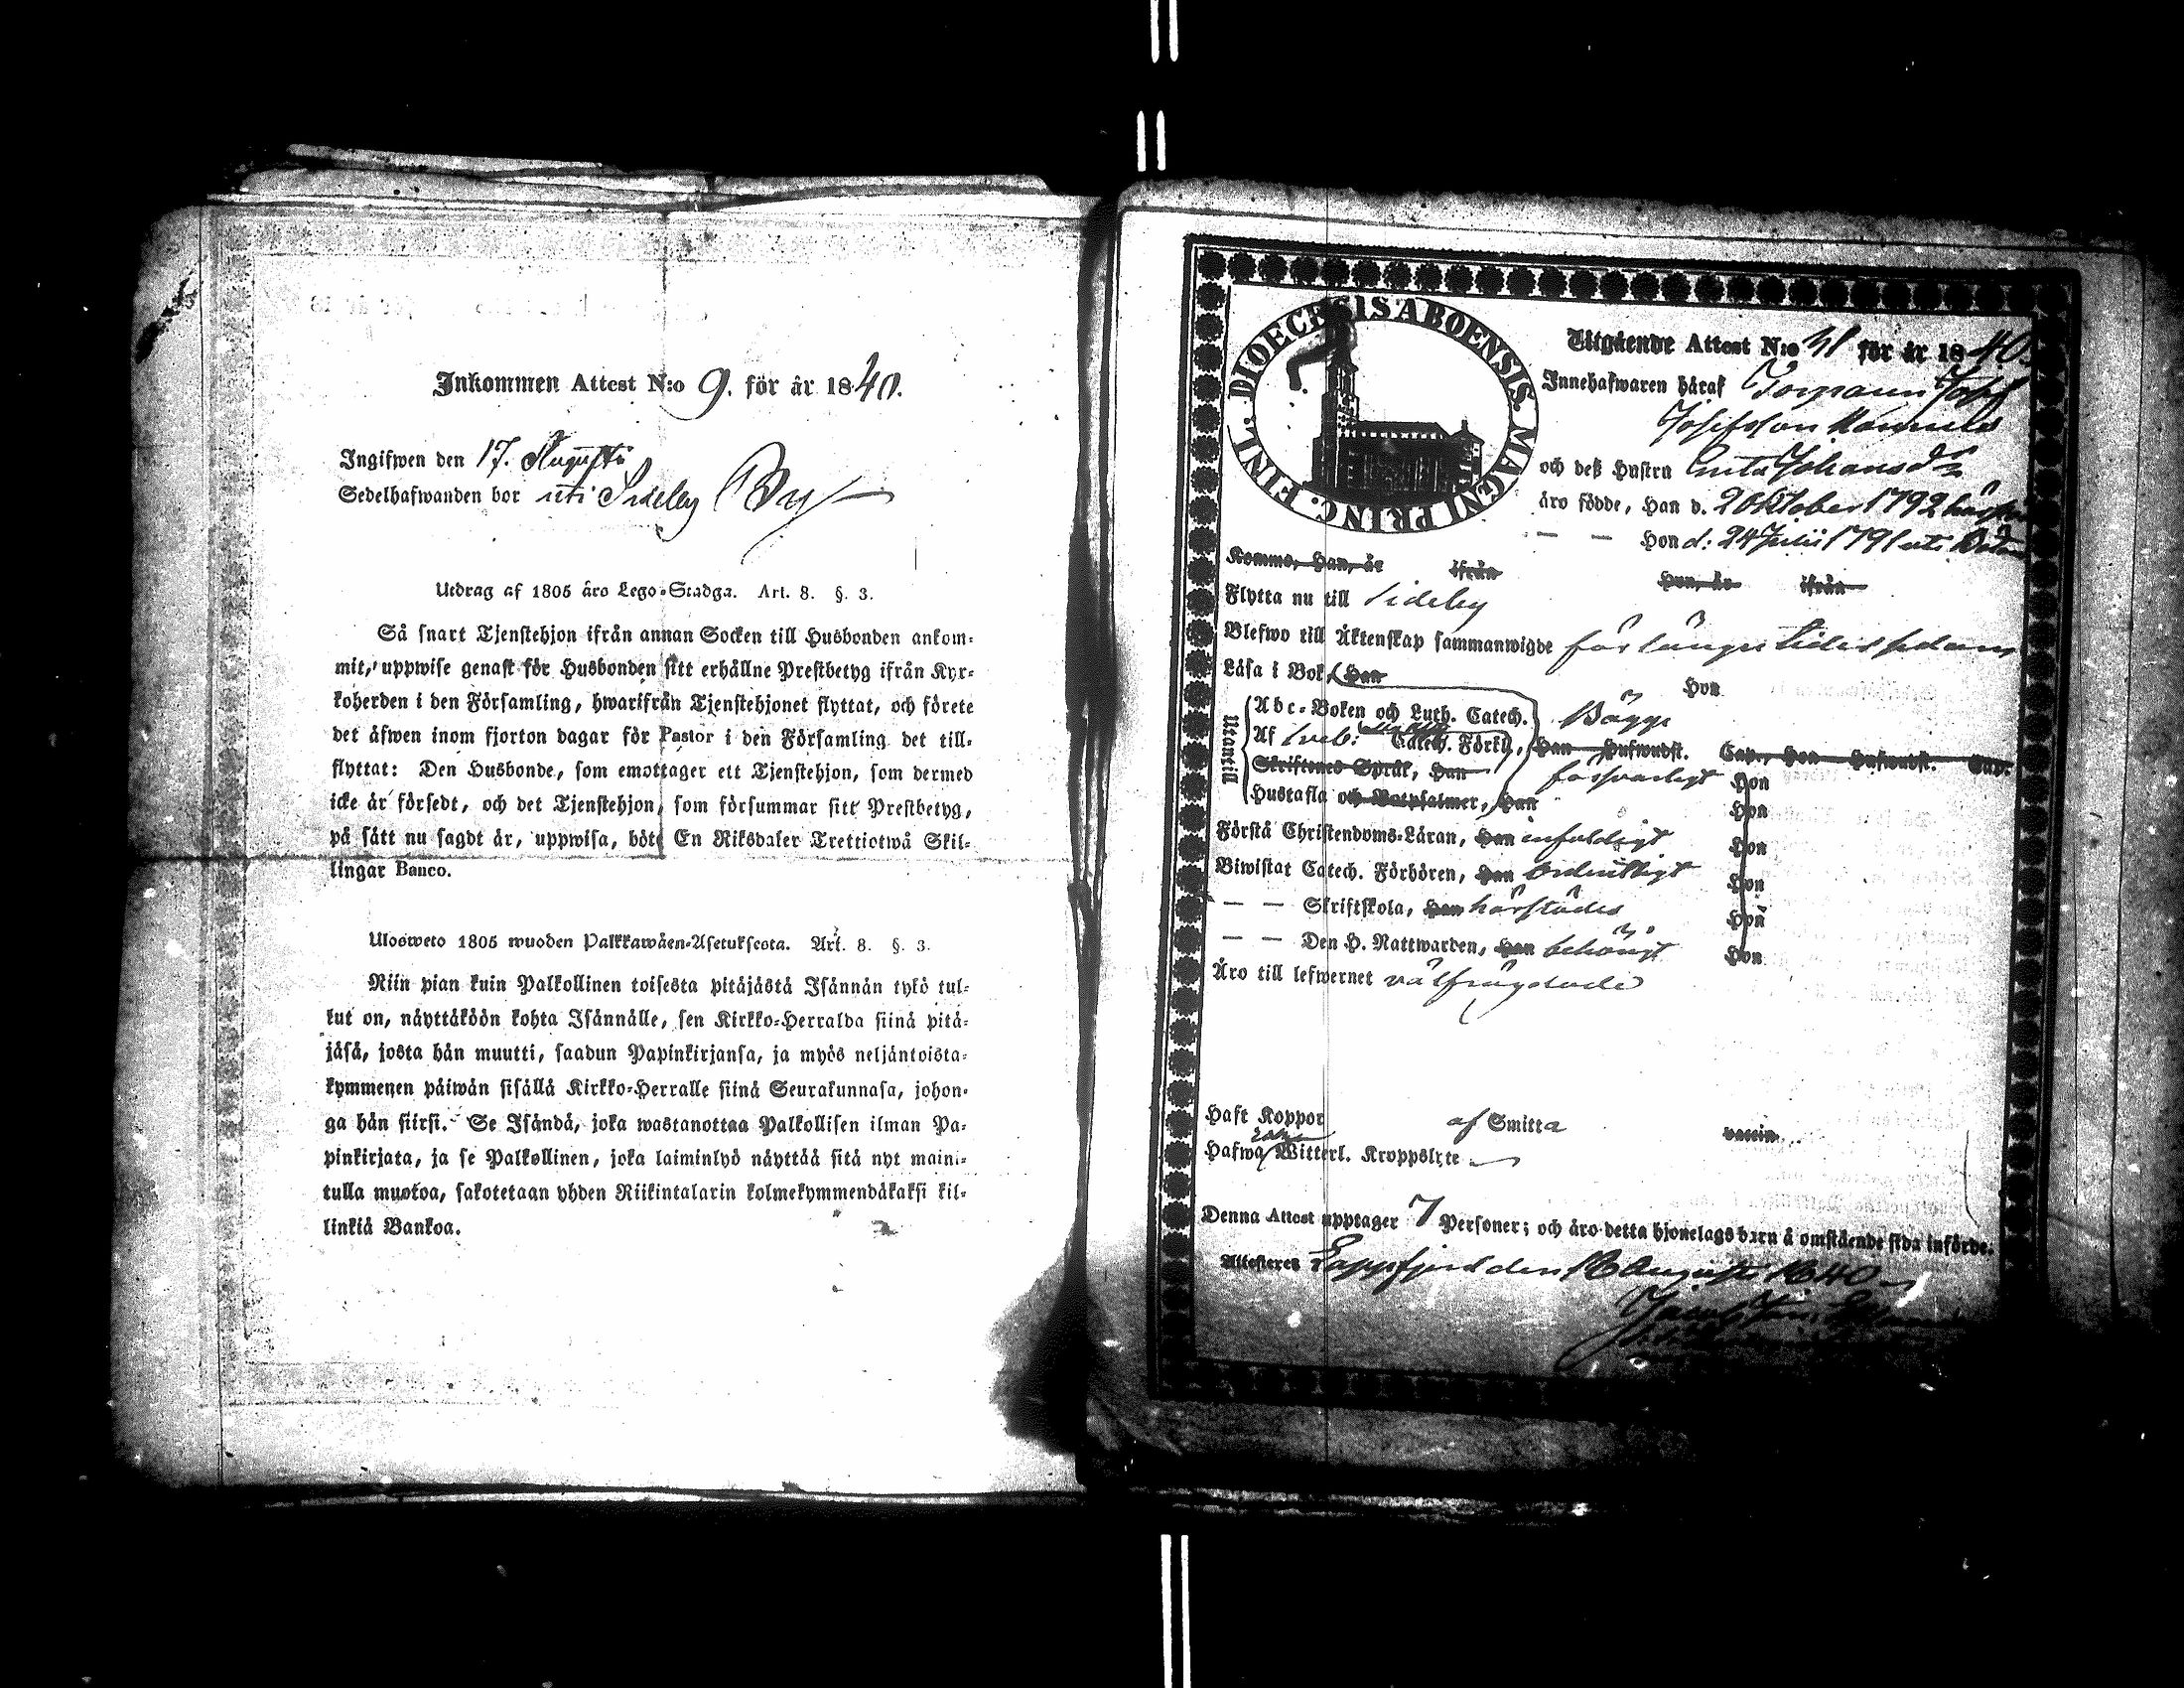 Inkommen Attest N:o 9. för år 1840.
Ingifwen den 17. Augusti
Sedelhafwanden bor uti Sideby By
Utdrag af 1805 års Lego-Stadga. Art. 8. §. 3.
Så snart Tjenstehjon ifrån annan Socken till Husbonden ankom-
mit, uppwise genast för Husbonden sitt erhållne Prestbetyg ifrån Kyr-
koherden i den Församling, hwarifrån Tjenstehjonet flyttat, och förete
det äfwen inom fjorton dagar för Pastor i den Församling det till-
flyttat: Den Husbonde, som emottager ett Tjenstehjon, som dermed
icke är försedt, och det Tjenstehjon, som försummar sitt Prestbetyg,
på sätt nu sagdt är, uppwisa, böte En Riksdaler Trettiotwå Skil-
lingar Banco.
Ulosweto 1805 wuoden Palkkawäen-Asetuksesta. Art. 8. §. 3.
Niin pian kuin Palkollinen toisesta pitäjästä Isännän tykö tul-
lut on, näyttäköön kohta Isännälle, sen Kirkko-Herralda siinä pitä-
jäsä, josta hän muutti, saadun Papinkirjansa, ja myös neljäntoista-
kymmenen päiwän sisällä Kirkko-Herralle siinä Seurakunnasa, johon-
ga hän siirsi. Se Isändä, joka wastanottaa Palkollisen ilman Pa-
pinkirjata, ja se Palkollinen, joka laiminlyö näyttää sitä nyt maini-
tulla muotoa, sakotetaan yhden Riikintalarin kolmekymmendäkaksi kil-
linkiä Bankoa.
DIOECESIS ABOENSIS. MAGNI PRINC. FINL.
Utgående Attest N:o 31 för år 1840.
Innehafwaren häraf Torparen
Josefsson
och deß Hustru Greta Johansdr
äro födde, Han d. 2 Oktober 1792 härst
— — Hon d: 24 Julii 1791 uti
Komne, Han, år ifrån Hon, år ifrån
Flytta nu till Sideby
Blefwo till Äktenskap sammanwigde för längre tider sedan
Läsa i Bok, Han Hon
Utantill
Abc-Boken och Luth. Catech. Bägge
Af Sveb: Catech. Förkl., Han Hufwudst. Cap., Hon Hufwudst. Cap.
Skriftenes Språk, Han försvarligt Hon
Hustafla och Botpsalmer, Han Hon
Förstå Christendoms-Läran, Han enfaldigt Hon
Biwistat Catech. Förhören, Han ordentligt Hon
— — Skriftskola, Han härstädes Hon
— — Den H. Nattwarden, Han behörigt Hon
Äro till lefwernet välfrägdade
Haft Koppor af Smitta vaccin.
Hafwa Witterl. Kroppslyte
Denna Attest upptager 7 Personer; och äro detta hjonelags barn å omstående sida införde.
Attesteres Lappfjerd den 16 Augusti 1840